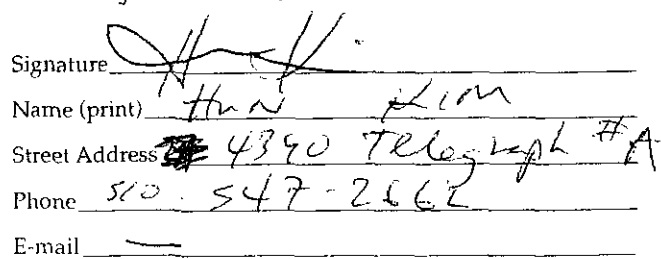 Signature
Name (print) Hun Kim
Street Address 4390 Telegraph #A
Phone 510-547-2662
E-mail —